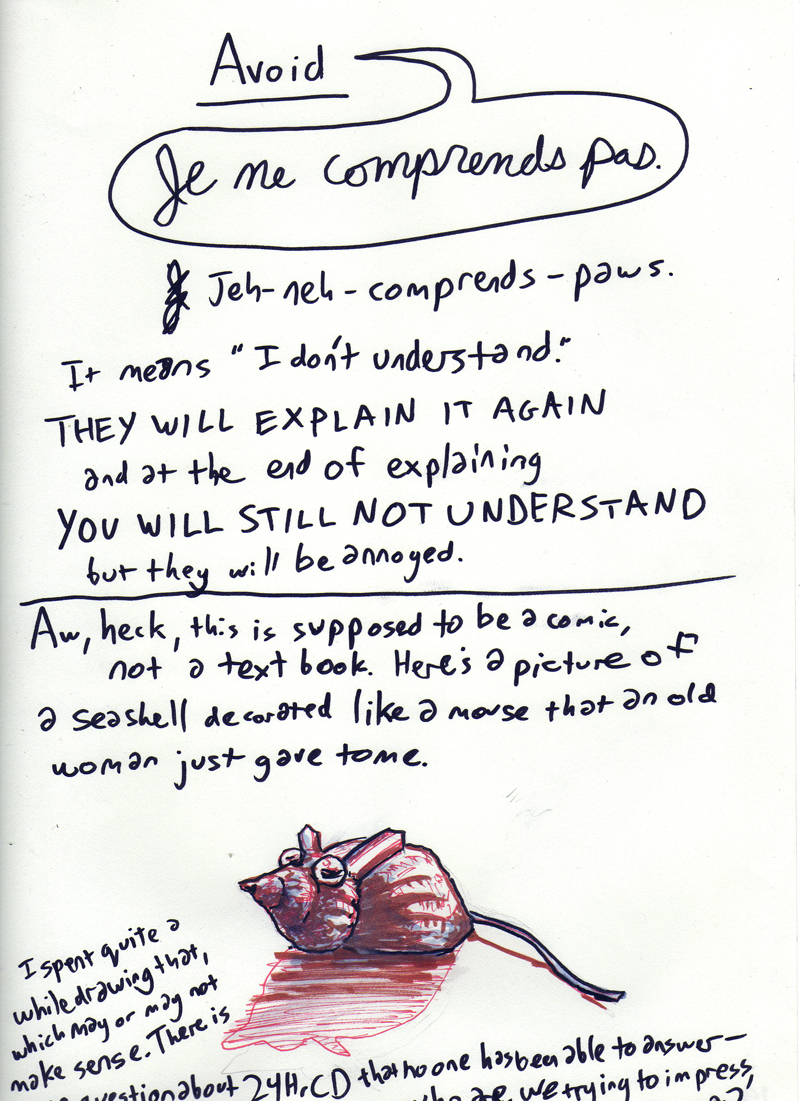 Avoid
Je ne comprends pas.
Jeh-neh-comprends-paws.
It means "I don't understand."
THEY WILL EXPLAIN IT AGAIN
and at the end of explaining
YOU WILL STILL NOT UNDERSTAND
but they will be annoyed.
Aw, heck, this is supposed to be a comic,
not a text book. Here's a picture of
a seashell decorated like a mouse that an old
woman just gave to me.
I spent quite a
while drawing that,
which may or may not
make sense. There is
question about 24Hr.CD that no one has been able to answer—
who are we trying to impress,